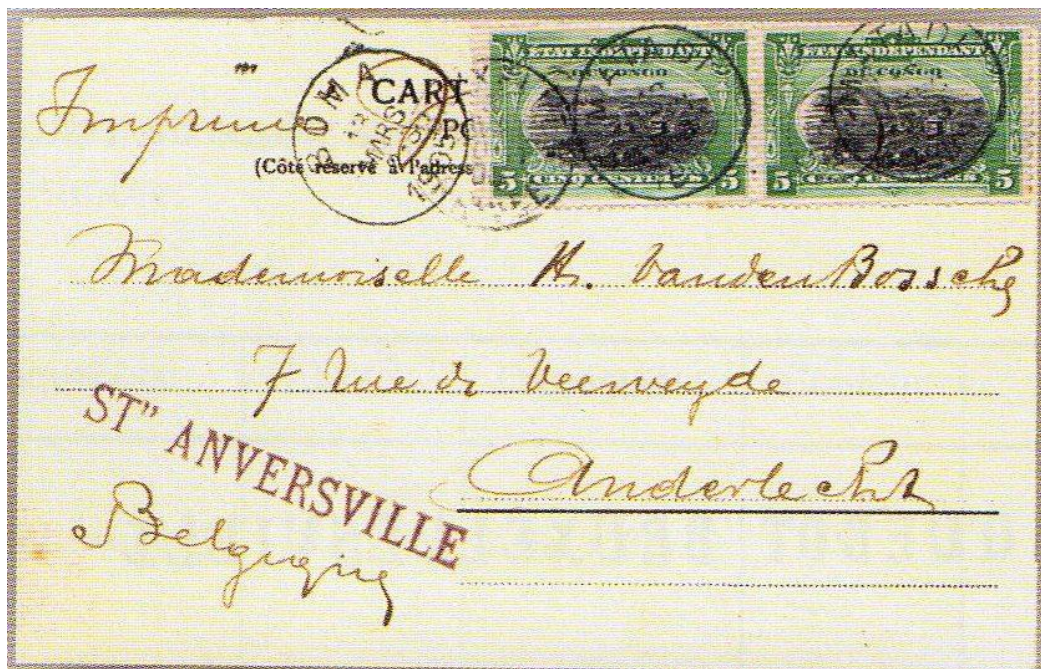 Imprimé
CART
PO
(Côté réservé à l'adress
BOMA
13
MARS
1905
ETAT INDEPENDANT
DU CONGO
5 CINQ CENTIMES 5
ETAT INDEPENDANT
DU CONGO
5 CINQ CENTIMES 5
MATADI
Mademoiselle H. Vanden Bossche
7 Rue de Veeweyde
Anderlecht
ST" ANVERSVILLE
Belgique